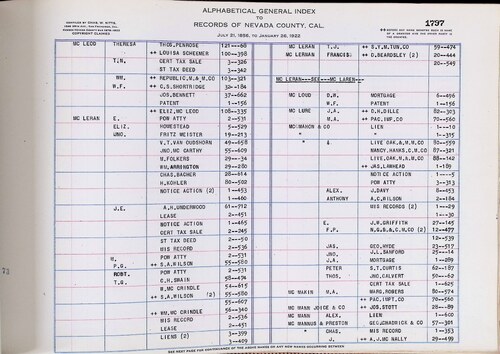 ALPHABETICAL GENERAL INDEX
TO
RECORDS OF NEVADA COUNTY, CAL.
JULY 21, 1856, TO JANUARY 26, 1922
1797
COPYRIGHT CLAIMED
MC LEOD THERESA THOS. PENROSE 121—66
++ LOUISA SCHEEMER 100—398
T.N. CERT TAX SALE 3—326
ST TAX DEED 3—342
WM. ++ REPUBLIC, M.& M.CO 103—321
W.F. ++ C.S. SHORTRIDGE 32—184
JOS, BENNETT 37—662
PATENT 1—156
++ ELIZ, MC LEOD 108—335
MC LERAN E. POW ATTY 2—531
ELIZ. HOMESTEAD 5—529
JNO. FRITZ MEISTER 19—213
V.T. VAN OUDSHORN 49—658
JNO, MC CARTHY 55—609
M. FOLKERS 29—34
WM, ARRINGTON 29—280
CHAS, BACHER 28—614
H. KOHLER 80—502
NOTICE ACTION (2) 1—453
1—460
J.E. A.H. UNDERWOOD 61—712
LEASE 2—451
NOTICE ACTION 1—465
CERT TAX SALE 2—245
ST TAX DEED 2—50
MIS RECORD 2—536
M. POW ATTY 2—531
P.G. ++ S.A. WILSON 55—580
ROBT. POW ATTY 2—531
T.G. C.H. SWAIN 58—474
W. MC CRINDLE 54—615
++ S.A. WILSON (2) 55—580
55—607
++ WM, MC CRINDLE 56—340
MIS RECORD 2—536
LEASE 2—451
LIENS (2) 3—399
3—409
MC LERAN T.J. ++ S.Y.M. TUN, CO 59—474
MC LERNAN FRANCIS ++ D. BEARDSLEY (2) 20—449
20—549
MC LERAN---SEE---MC LAREN---
MC LOUD D.W. MORTGAGE 6—496
W.F. PATENT 1—156
MC LURE J.A. ++ D.H. DILLE 82—303
M.A. ++ PAC, IMP, CO 70—560
MC MAHON & CO LIEN 1—10
" " 1—315
" & LIVE OAK, & M.M.CO 80—559
NANCY, HANKS, C.M.CO 87—321
LIVE, OAK, M.& M.CO 88—142
++ JAS, LAWHEAD 1—189
NOTICE ACTION 1—5
POW ATTY 3—313
ALEX. J. DAVY 8—453
ANTHONY A.C. WILSON 2—184
MIS RECORDS (2) 1—29
1—30
E. J.W. GRIFFITH 27—145
F.P. N.G.S.& C.M.CO (2) 12—477
12—539
JAS. GEO, HYDE 23—517
JNO. J.L. SANFORD 25—14
J.A. MORTGAGE 1—289
PETER S.T. CURTIS 62—187
THOS. JNO, CALVERT 50—62
CERT TAX SALE 1—625
MC MAKIN M.A. MRS, ROGERS 80—574
++ PAC, IMP, CO 70—560
MC MANN JOICE & CO ++ JOS, STOTT 28—89
MC MANN ALEX. LIEN 1—600
MC MANNUS & PRESTON GEO, CHADRICK & CO 57—301
" CHAS. MIS RECORD 1—353
" J. ++ A.J. MC NALLY 29—499